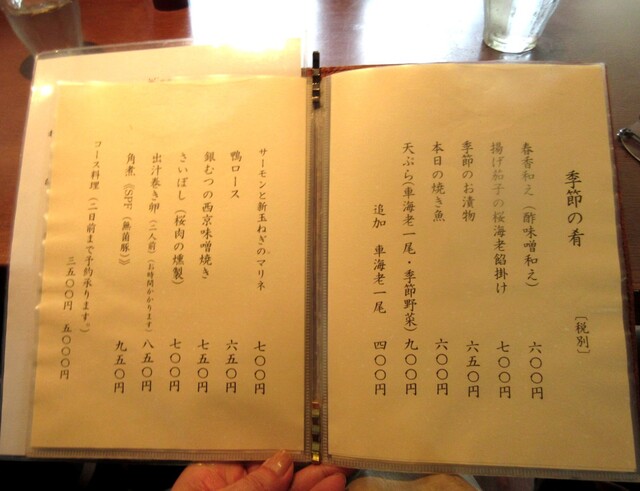 季節の肴
〔税別〕
春香和え（酢味噌和え） 六〇〇円
揚げ茄子の桜海老餡掛け 七〇〇円
季節のお漬物 六五〇円
本日の焼き魚 六〇〇円
天ぷら（車海老一尾・季節野菜） 九〇〇円
追加 車海老一尾 四〇〇円
サーモンと新玉ねぎのマリネ 七〇〇円
鴨ロース 六五〇円
銀むつの西京味噌焼き 七五〇円
さいぼし（桜肉の燻製） 七〇〇円
出汁巻き卵（二人前）（お時間かかります） 八五〇円
角煮《SPF（無菌豚）》 九五〇円
コース料理（二日前まで予約承ります。）
三五〇〇円 五〇〇〇円